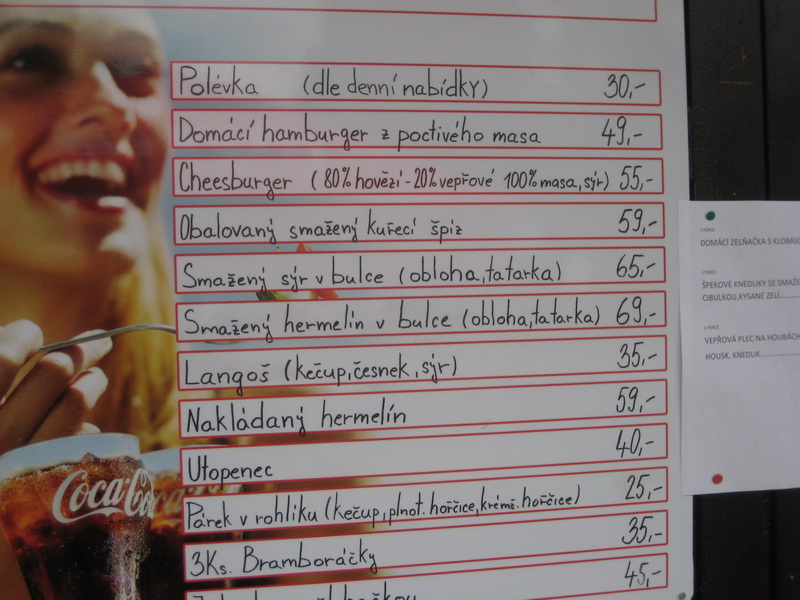 Polévka (dle denní nabídky) 30,-
Domácí hamburger z poctivého masa 49,-
Cheesburger (80% hovězí - 20% vepřové 100% masa, sýr) 55,-
Obalovaný smažený kuřecí špíz 59,-
Smažený sýr v bulce (obloha, tatarka) 65,-
Smažený hermelín v bulce (obloha, tatarka) 69,-
Langoš (kečup, česnek, sýr) 35,-
Nakládaný hermelín 59,-
Utopenec 40,-
Párek v rohlíku (kečup, plnot. hořčice, krémž. hořčice) 25,-
3Ks. Bramboráčky 35,-
45,-
Coca-Co
DOMÁCÍ ZELŇAČKA S KLOBÁSO
ŠPEKOVÉ KNEDLÍKY SE SMAŽE
CIBULKOU, KYSANÉ ZELÍ
VEPŘOVÁ PLEC NA HOUBÁCH
HOUSK. KNEDLÍK